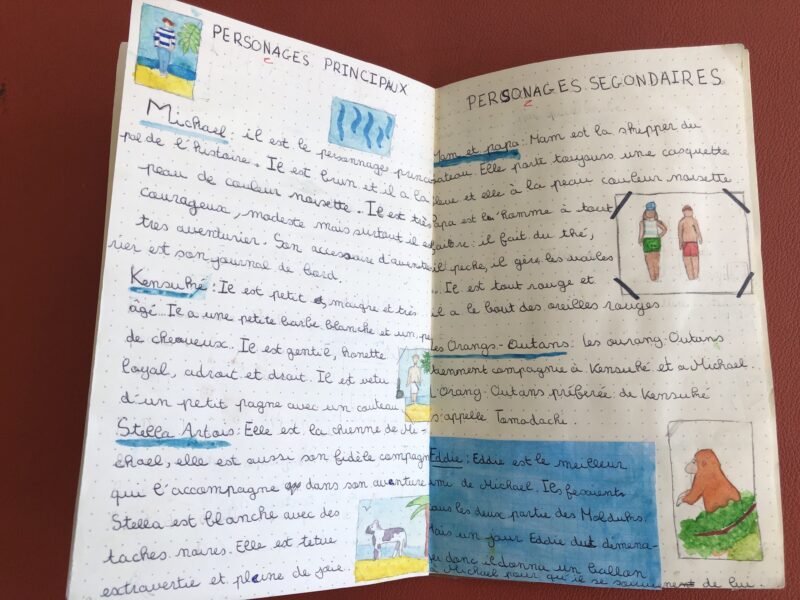 PERSONAGES PRINCIPAUX
Michael : il est le personnage princi
pal de l'histoire. Il est brun et il a la
peau de couleur noisette. Il est très
courageux, modeste mais surtout il est
très aventurier. Son accessoire d'aventu
rier est son journal de bord.
Kensuké : Il est petit, maigre et très
âgé. Il a une petite barbe blanche et un peu
de cheveux. Il est gentil, honette
loyal, adroit et droit. Il est vetu
d'un petit pagne avec un couteau
Stella Artois : Elle est la chienne de Mi-
chael, elle est aussi son fidèle compagn
qui l'accompagne dans son aventure
Stella est blanche avec des
taches noires. Elle est tetue
extravertie et pleine de joie.
PERSONAGES SEGONDAIRES
Mam et papa : Mam est la skipper du
bateau. Elle porte toujours une casquette
bleue et elle à la peau couleur noisette.
Papa est l'homme à tout
faire : il fait du thé,
il peche, il gère les voiles
Il est tout rouge et
il a le bout des oreilles rouges
les Orangs-Outans : les ourang-Outans
tiennent compagnie à Kensuké et a Michael.
L'Orang-Outans préférée de Kensuké
s'appelle Tomodachi.
Eddie : Eddie est le meilleur
ami de Michael. Ils
tous les deux partie des Molduks.
Mais un jour Eddie dut démena-
ger donc il donna un ballon
a Michael pour qu'il se souvienne de lui.